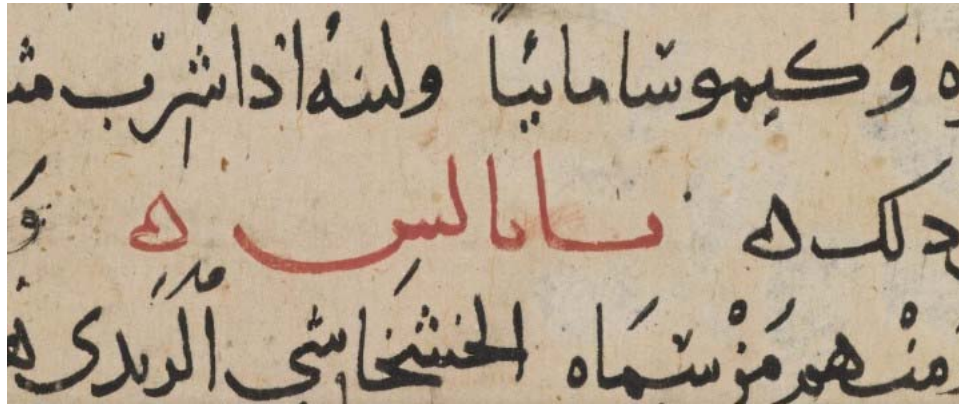 وَكيموسا مائيا ولبنه اذا شرب
ذلك ه ساىالس ه و
ومنهم مَنْ سمَاه الخشخاش الزبدى